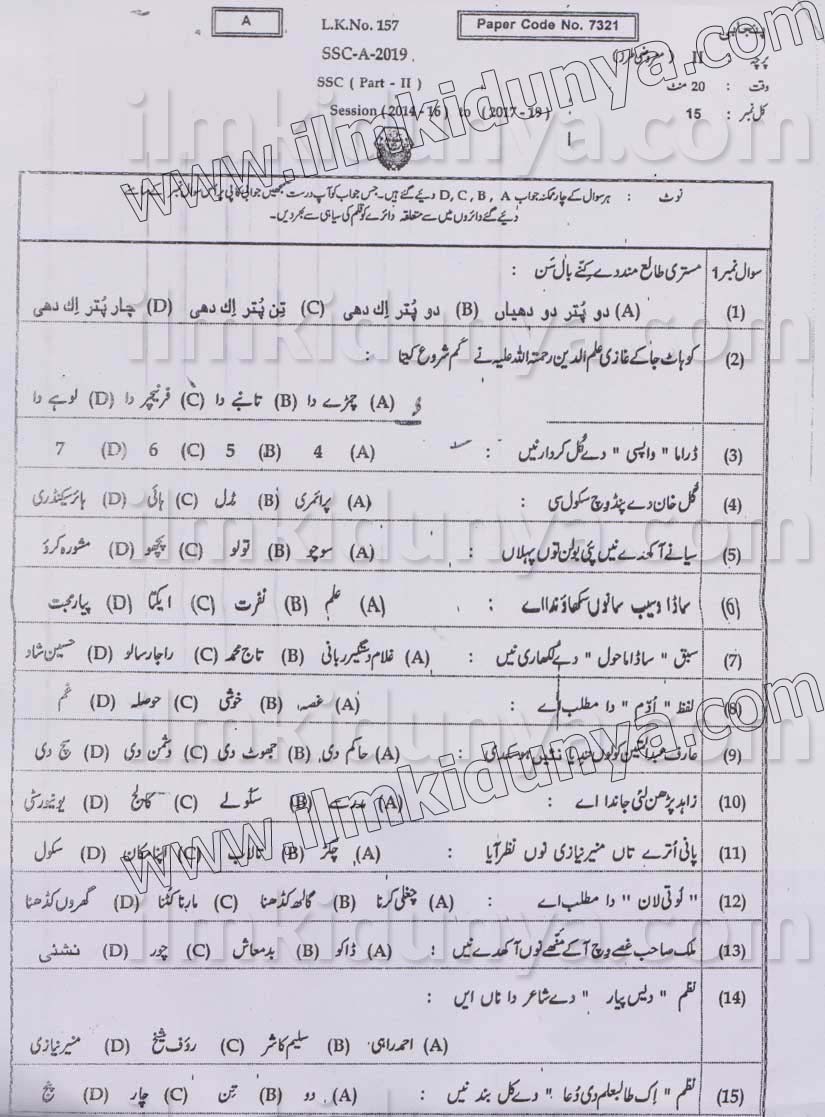 A
L.K.No. 157
Paper Code No. 7321
پنجابی
SSC-A-2019
پرچہ : II (معروضی طرز)
SSC ( Part - II )
وقت : 20 منٹ
Session (2014-16) to (2017-19)
کل نمبر : 15
نوٹ : ہر سوال کے چار ممکنہ جواب D, C, B, A دیئے گئے ہیں۔ جس جواب کو آپ درست سمجھیں جوابی کاپی پر اس سوال نمبر کے سامنے
دیئے گئے دائروں میں سے متعلقہ دائرے کو قلم کی سیاہی سے بھر دیں۔
سوال نمبر 1 مستری طالع مند دے کنے بال سن :
(1) (A) دو پُتر دو دھیاں (B) دو پُتر اِک دھی (C) تِن پُتر اِک دھی (D) چار پُتر اِک دھی
(2) کوہاٹ جا کے غازی علم الدین رحمتہ اللہ علیہ نے کم شروع کیتا :
(A) چمڑے دا (B) تانبے دا (C) فرنیچر دا (D) لوہے دا
(3) ڈراما " واپسی " دے کُل کردار نیں : (A) 4 (B) 5 (C) 6 (D) 7
(4) گل خان دے پنڈ وچ سکول سی : (A) پرائمری (B) مڈل (C) ہائی (D) ہائر سیکنڈری
(5) سیانے آکھدے نیں پئی بولن توں پہلاں : (A) سوچو (B) تولو (C) پچھو (D) مشورہ کرؤ
(6) ساڈا وسیب سانوں سکھاؤندا اے : (A) علم (B) نفرت (C) ایکتا (D) پیار محبت
(7) سبق " ساڈا ماحول " دے لکھاری نیں : (A) غلام دستگیر ربانی (B) تاج محمد (C) راجا رسالو (D) حسین شاد
(8) لفظ " اُدّم " دا مطلب اے : (A) غصہ (B) خوشی (C) حوصلہ (D) غم
(9) عارف عبدالمتین کولوں حیا نئیں ہو سکدی : (A) حاکم دی (B) جھوٹ دی (C) دشمن دی (D) سچ دی
(10) زاہد پڑھن لئی جاندا اے : (A) مدرسے (B) سکولے (C) کالج (D) یونیورسٹی
(11) پانی اُترے تاں منیر نیازی نوں نظر آیا : (A) چکڑ (B) تالاب (C) اپنا مکان (D) سکول
(12) " لُوتی لان " دا مطلب اے : (A) چغلی کرنا (B) گالھ کڈھنا (C) مارنا کٹنا (D) گھروں کڈھنا
(13) ملک صاحب غصے وچ آ کے مُنھے نوں آکھدے نیں : (A) ڈاکو (B) بدمعاش (C) چور (D) نشئی
(14) نظم " دیس پیار " دے شاعر دا ناں ایں :
(A) احمد راہی (B) سلیم کاشر (C) رؤف شیخ (D) منیر نیازی
(15) نظم " اِک طالبعلم دی دُعا " دے کل بند نیں : (A) دو (B) تِن (C) چار (D) پنج
www.ilmkidunya.com
www.ilmkidunya.com
ilmkidunya.com
ilmkidunya.com
ilmkidunya.com
ilmkidunya.com
ilmkidunya.com
ilmkidunya.com